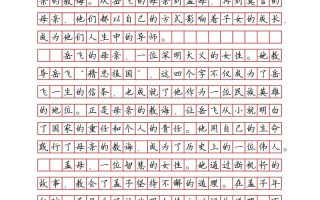 亲的教诲。从岳飞的母亲，到孟母，再到莫言的
母亲，他们都以自己的方式影响着子女的成长，
成为他们人生中的导师。
岳飞的母亲，一位深明大义的女性。她教
导岳飞“精忠报国”，这四个字不仅成为了岳
飞一生的信条，也成就了他作为一位民族英雄
的地位。正是母亲的教诲，让岳飞从小就明白
了国家的重任和个人的责任。他用自己的生命
践行了母亲的教诲，成为了历史上的一位伟人。
孟母，一位智慧的女性。她通过断机杼的
故事，教会了孟子坚持不懈的道理。在孟子年